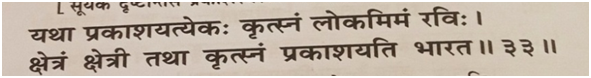 [ सूर्यके दृष्टान्तसे
यथा प्रकाशयत्येकः कृत्स्नं लोकमिमं रविः।
क्षेत्रं क्षेत्री तथा कृत्स्नं प्रकाशयति भारत॥ ३३॥